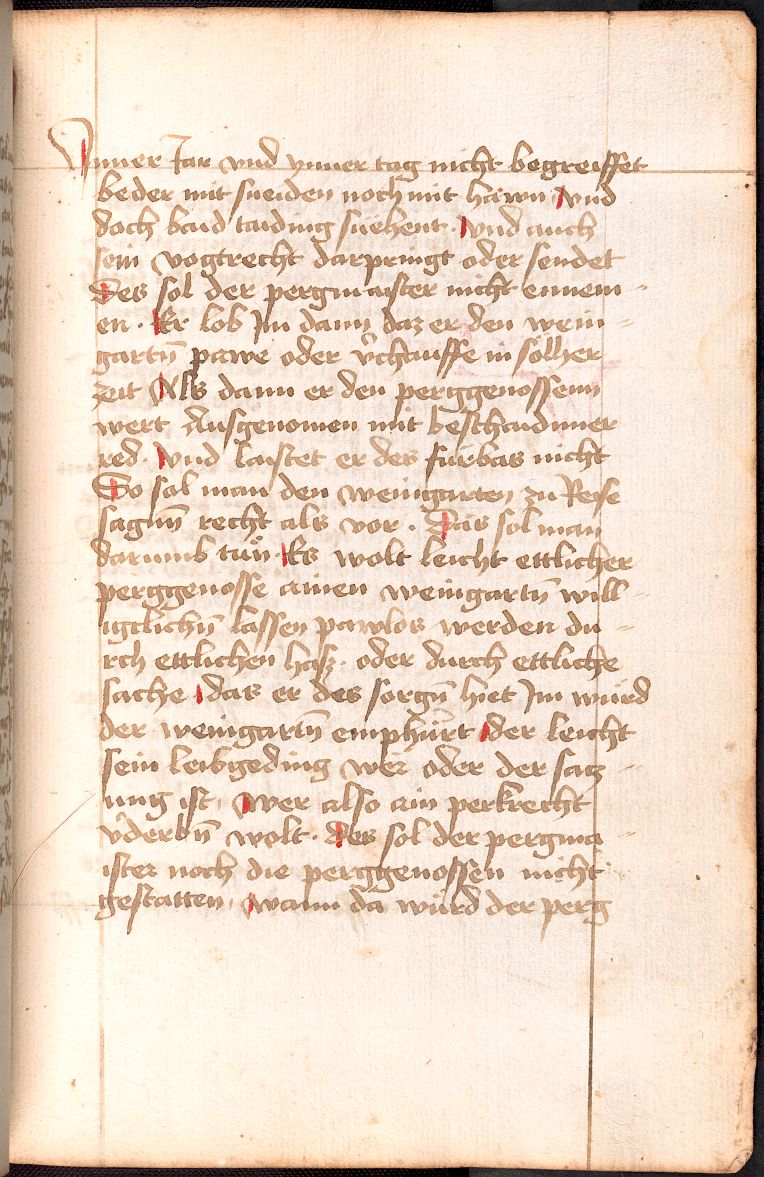 Ynner Jar vnd ynner tag nicht begreiffet
beder mit sneiden noch mit hawn vnd
doch baid taiding suehent · vnd auch
sein vogtrecht darpringt oder sendet
des sol der pergmaister nicht ennem=
en · Er lob Im dann daz er den wein=
gartn̄ pawe oder v̓chauffe in solher
zeit Als dann er den perggenossenn
wert Ausgenomen mit beschaidnner
red · Vnd laistet er des fürbas nicht
So sol man den weingarten zu Reise
sagnn̄ recht als vor · Das sol man
darumb tůn · Es wolt leicht ettlicher
perggenosse ainen weingartn̄ will=
igclichn̄ lassen pawlos werden du=
rch ettlichen hasz · oder durch ettliche
sache · das er des sorgn̄ hiet Im würd
der weingartn̄ emphürt der leicht
sein leibgeding wer oder der satz=
ung ist · wer also ain perkrecht
v̓derbn̄ wolt · des sol der pergma=
ister noch die perggenossen nicht
gestatten · wann da würd der perg